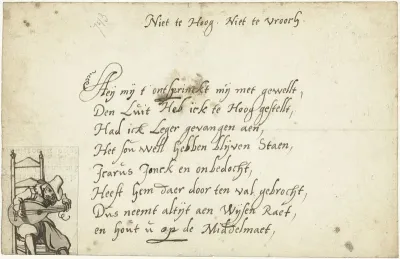 Niet te Hoog. Niet te vrooch.
Heij mij t' ontsprinckt mij met gewellt,
Den Luit Heb ick te Hoog gestellt,
Had ick Leger gevangen aen,
Het sou well hebben blijven Staen,
Icarus Jonck en onbedocht,
Heeft hem daer door ten val gebrocht,
Dus neemt altijt aen Wijsen Raet,
en hout u op de Middelmaet,